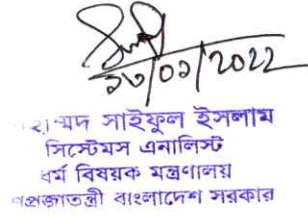 ২০/০১/2022
মোহাম্মদ সাইফুল ইসলাম
সিস্টেমস এনালিস্ট
ধর্ম বিষয়ক মন্ত্রণালয়
গণপ্রজাতন্ত্রী বাংলাদেশ সরকার